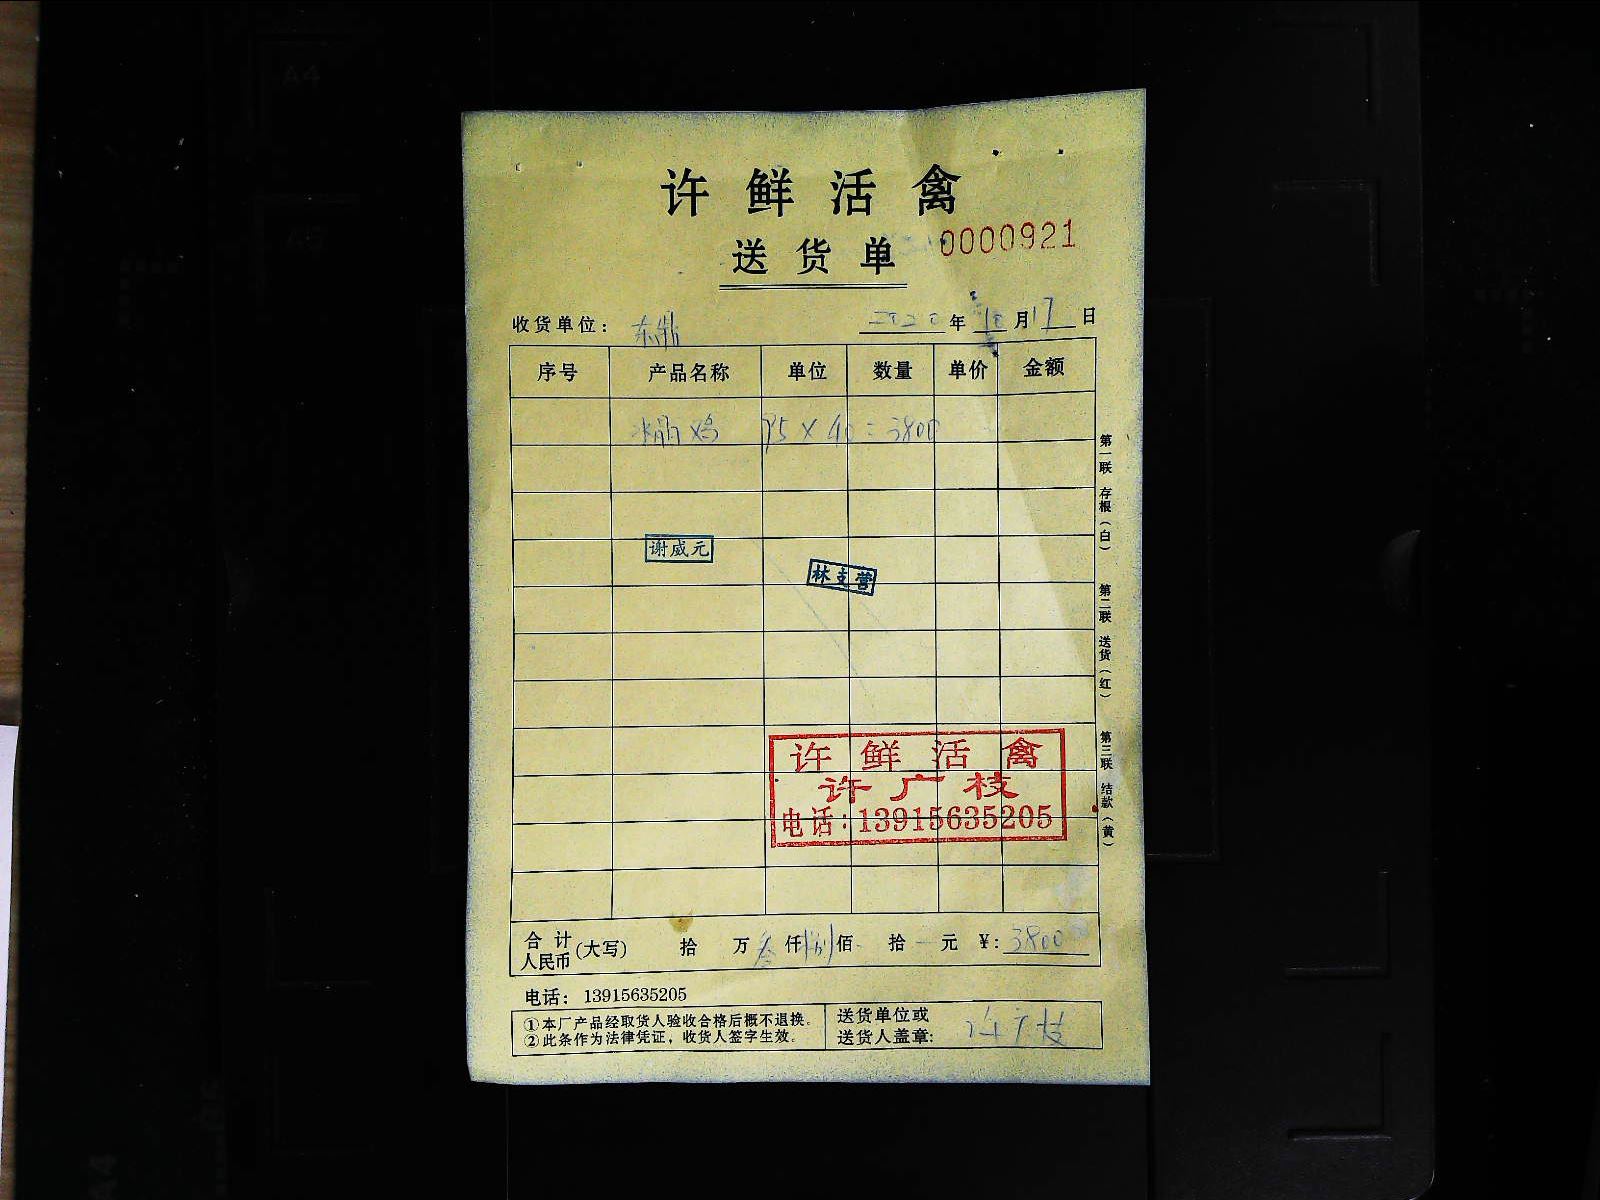 许鲜活禽
送货单 0000921
收货单位: 东鼎 2020年10月17日
序号 产品名称 单位 数量 单价 金额
水晶鸡 95×40=3800
谢威元
林支营
许鲜活禽
许广枝
电话:13915635205
第一联 存根(白) 第二联 送货(红) 第三联 结款(黄)
合计人民币(大写) 拾 万叁仟捌佰 拾 元 ¥:3800
电话: 13915635205
①本厂产品经取货人验收合格后概不退换。
②此条作为法律凭证,收货人签字生效。
送货单位或
送货人盖章: 许广枝
A4
A5
A4